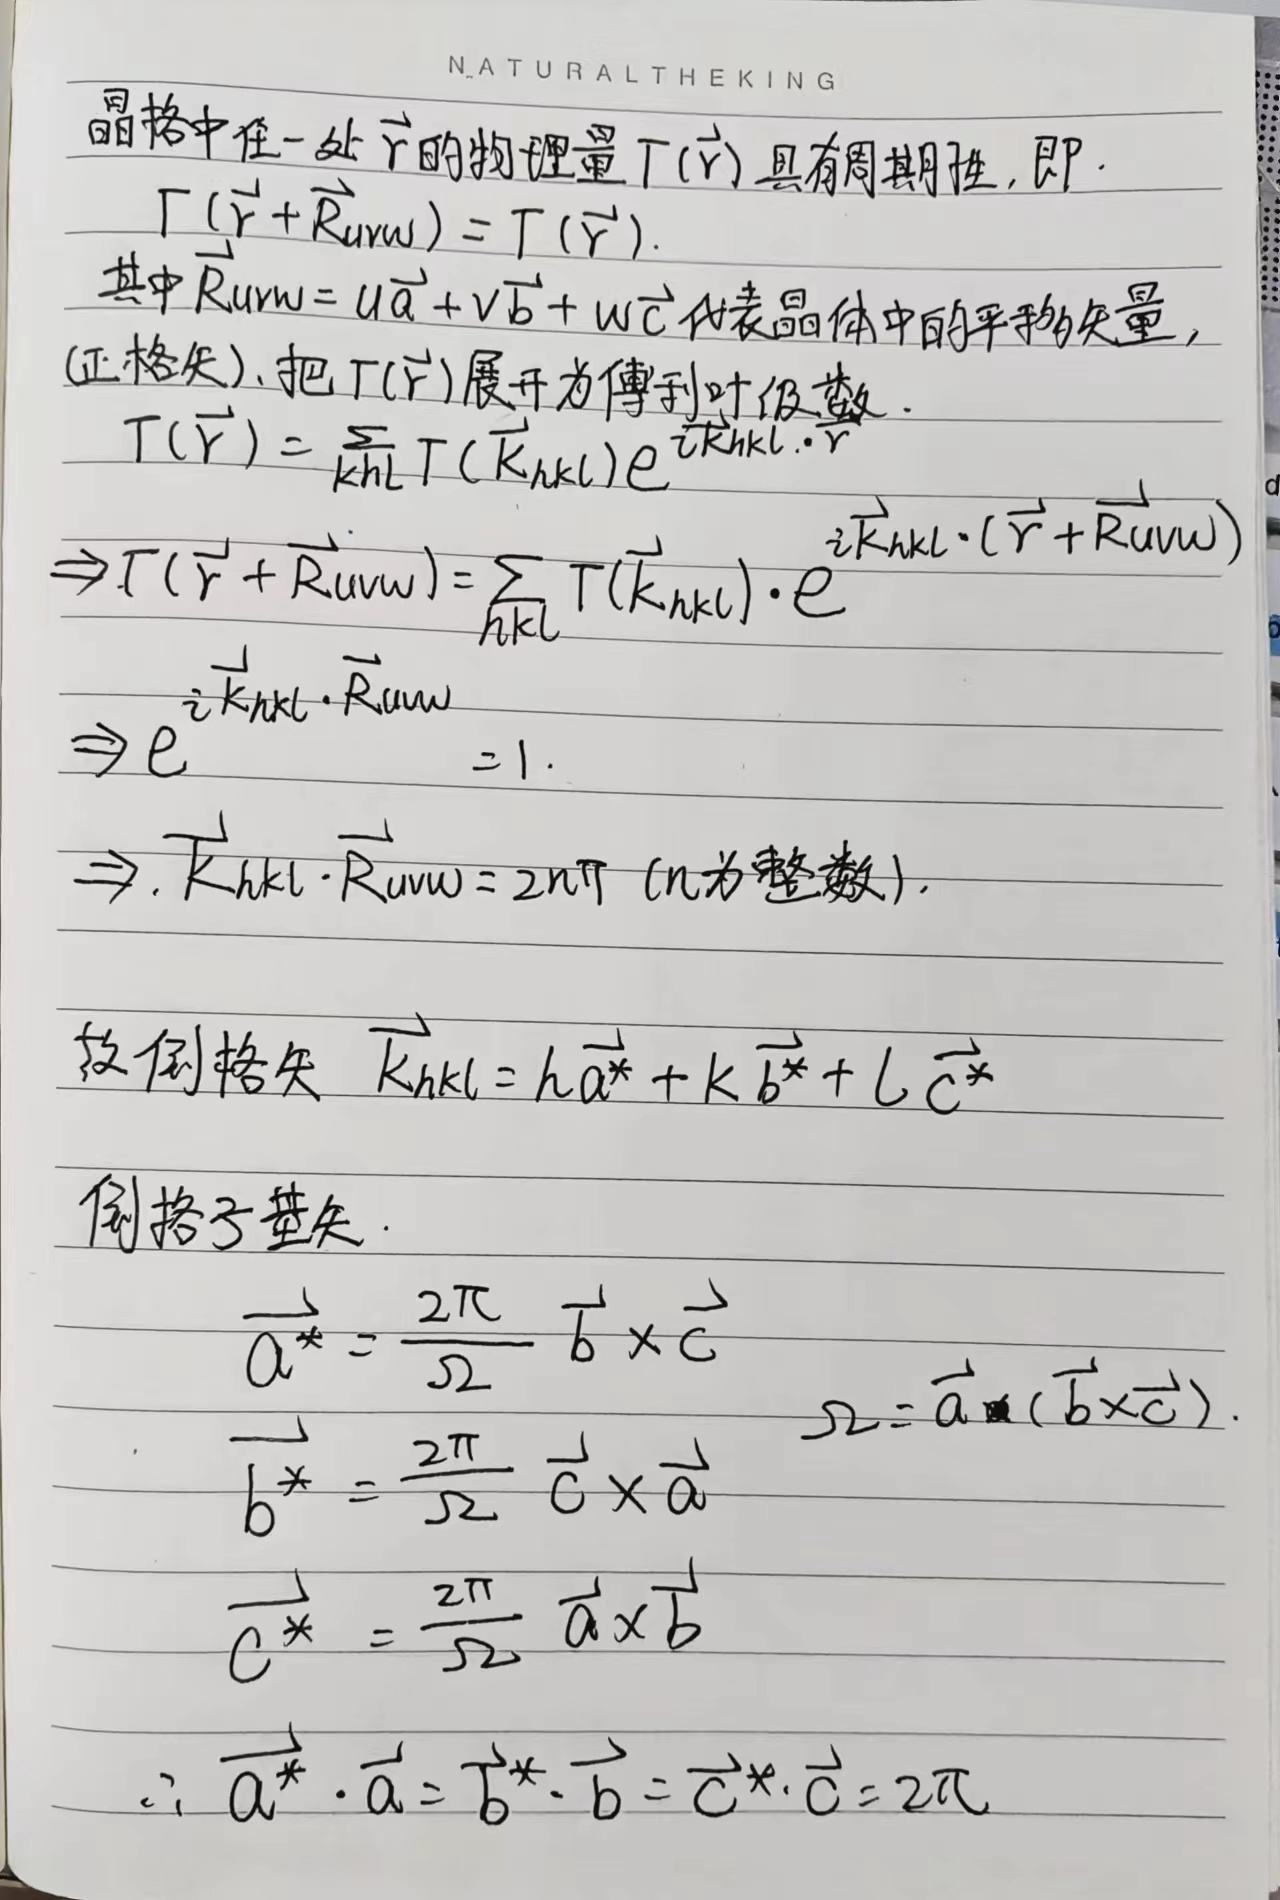 NATURALTHEKING
晶格中任一处 r⃗ 的物理量 T(r⃗) 具有周期性, 即.
T(r⃗ + R⃗uvw) = T(r⃗).
其中 R⃗uvw = ua⃗ + vb⃗ + wc⃗ 代表晶体中的平移矢量,
(正格矢)、把 T(r⃗) 展开为傅利叶级数.
T(r⃗) = Σ_khl T(K⃗hkl) e^{iK⃗hkl·r⃗}
⇒ T(r⃗ + R⃗uvw) = Σ_hkl T(K⃗hkl) · e^{iK⃗hkl·(r⃗ + R⃗uvw)}
⇒ e^{iK⃗hkl·R⃗uvw} = 1.
⇒. K⃗hkl · R⃗uvw = 2nπ (n为整数).
故倒格矢 K⃗hkl = ha⃗* + kb⃗* + lc⃗*
倒格子基矢.
a⃗* = 2π/Ω b⃗ × c⃗
Ω = a⃗ · (b⃗ × c⃗).
b⃗* = 2π/Ω c⃗ × a⃗
c⃗* = 2π/Ω a⃗ × b⃗
∴ a⃗* · a⃗ = b⃗* · b⃗ = c⃗* · c⃗ = 2π